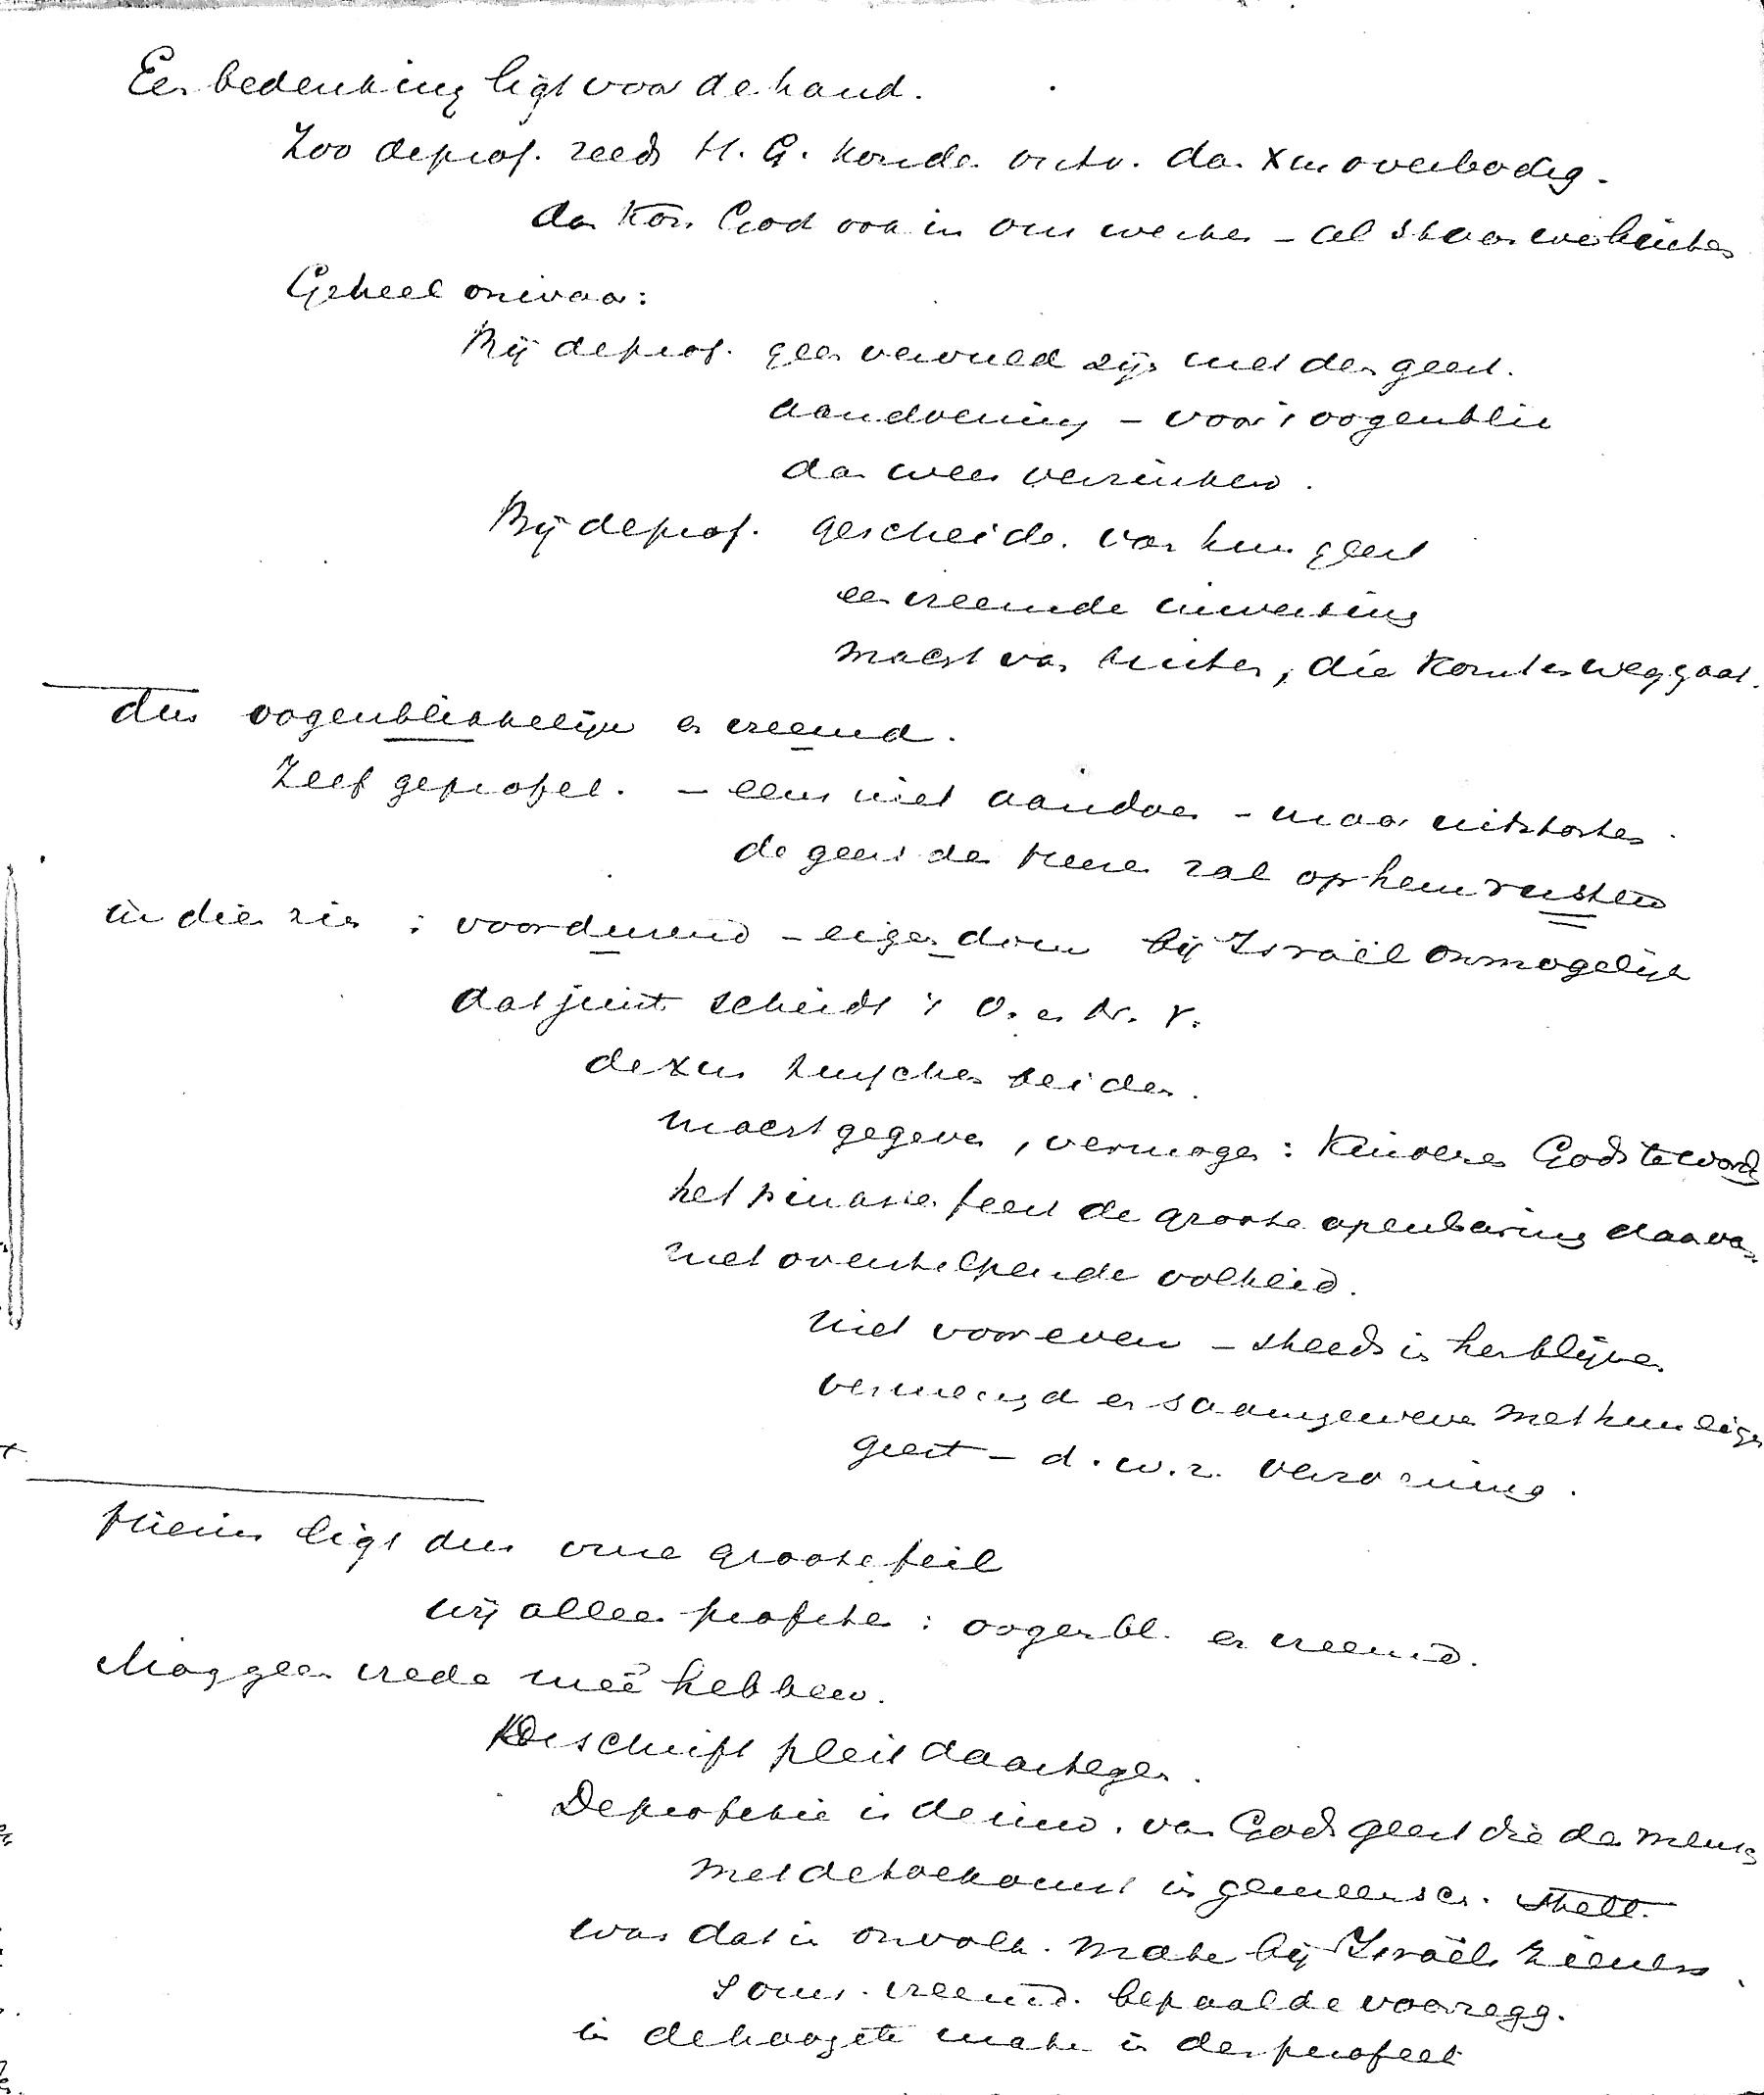 Een bedenking ligt voor de hand.
Zoo de prof. reeds H. G. konde ontv. dan Xus overbodig.
dan kon God ook in ons werken – al stoor
Geheel onwaar:
Bij de prof. geen vervuld zijn met den geest.
aandoening – voor 't oogenblik
dan weer verzinken.
Bij de prof. gescheiden van hun geest
een vreemde inwerking
macht van buiten, die komt en weggaat.
dus oogenblikkelijk en vreemd.
Zelf geprofet. – eens niet aandoen – maar uitstorten.
de geest des Heeren zal op hem rusten
in dien zin : voordurend – eigendom bij Israël onmogelijk
dat juist scheidt 't O. en N. V.
de Xus tusschen beiden.
macht gegeven, vermogen : kinderen Gods te word.
het pinksterfeest de groote openbaring daarvan
met overstelpende volheid.
niet voor even – steeds in hen blijven
vermengd en saamgeweven met hun eigen
geest – d.w.z. verzoening.
Hierin ligt dus onze groote feil
wij alleen profeten : oogenbl. en vreemd.
Mag geen vrede meê hebben.
De schrift pleit daartegen.
De profetie is de inw. van Gods geest die den mensch
met de toekomst in gemeensch. stelt.
was dat in onvolk. mate bij Israëls zieners
soms vreemd. bepaalde voorzegg.
in de hoogste mate in den profeet